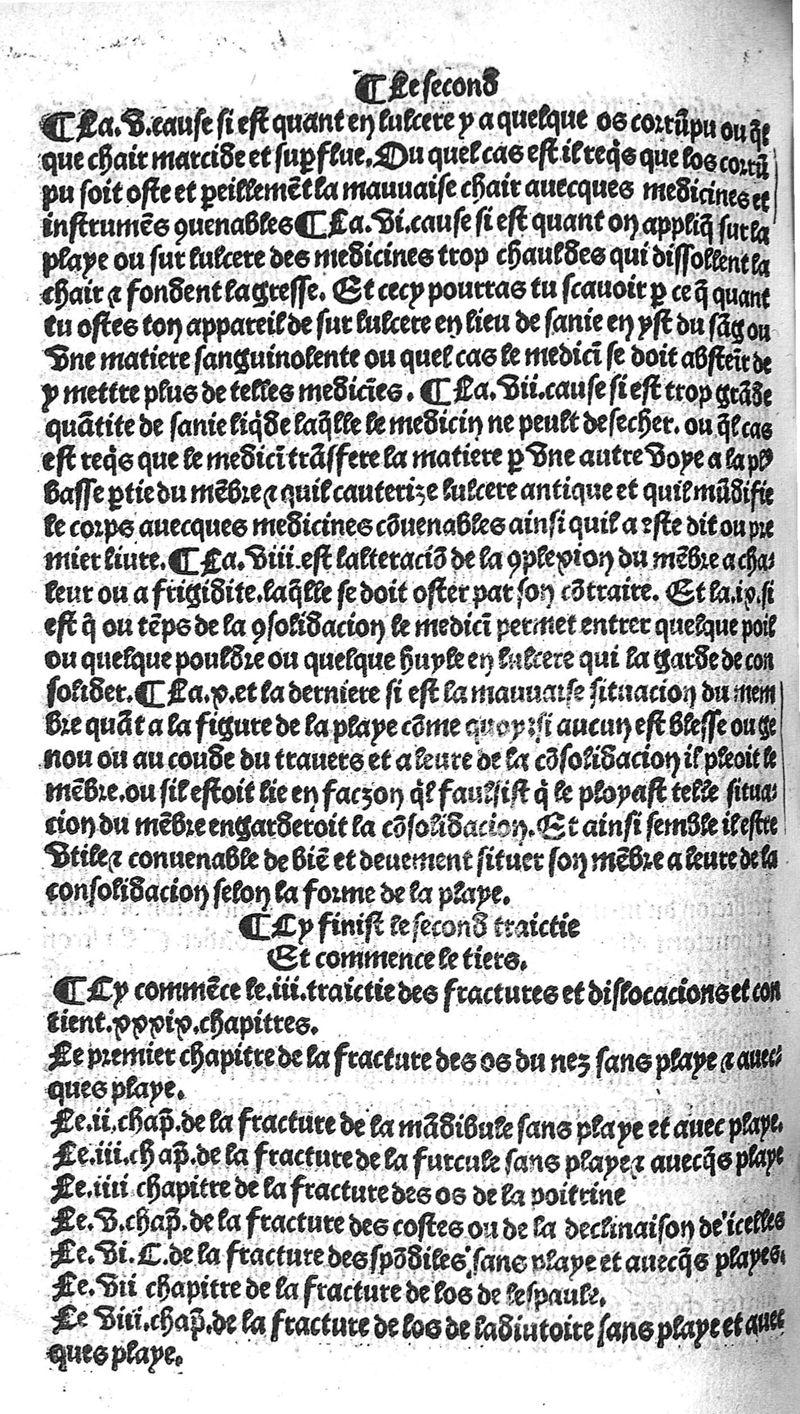 ¶ Le second
¶ La.v.cause si est quant en lulcere y a quelque os corrũpu ou q̃l
que chair marcide et suꝑflue. Ou quel cas est il req̃s que los corrũ
pu soit oste et ꝑeillemẽt la mauuaise chair auecques medicines et
instrumẽs ꝯuenables ¶ La.vi.cause si est quant on appliq̃ sur la
playe ou sur lulcere des medicines trop chauldes qui dissollent la
chair ⁊ fondent la gresse. Et cecy pourras tu scauoir ꝑ ce q̃ quant
tu ostes ton appareil de sur lulcere en lieu de sanie en yst du sãg ou
vne matiere sanguinolente ou quel cas le medicĩ se doit abstenir de
y mettre plus de telles medicĩes. ¶ La.vii.cause si est trop grãde
quãtite de sanie liq̃de laq̃lle le medicin ne peult desecher. ou q̃l cas
est req̃s que le medicĩ trãsfere la matiere ꝑ vne autre voye a la pl9
basse ꝑtie du mẽbre ⁊ quil cauterize lulcere antique et quil mũdifie
le corps auecques medicines cõuenables ainsi quil a este dit ou pre
mier liure. ¶ La.viii.est lalteraciõ de la ꝯplexion du mẽbre a cha⸗
leur ou a frigidite.laq̃lle se doit oster par son cõtraire. Et la.ix.si
est q̃ ou tẽps de la ꝯsolidacion le medicĩ permet entrer quelque poil
ou quelque pouldre ou quelque huyle en lulcere qui la garde de con
solider. ¶ La.x.et la derniere si est la mauuaise situacion du mem
bre quãt a la figure de la playe cõme quoy:si aucun est blesse ou ge
nou ou au coude du trauers et a leure de la cõsolidacion il pleoit le
mẽbre.ou sil estoit lie en faczon q̃l faulsist q̃ le ployast telle situa⸗
cion du mẽbre engarderoit la cõsolidacion. Et ainsi semble il estre
vtile ⁊ conuenable de biẽ et deuement situer son mẽbre a leure de la
consolidacion selon la forme de la playe.
¶ Cy finist le second traictie
Et commence le tiers.
¶ Cy commẽce le.iii.traictie des fractures et dislocacions et con
tient.xxxix.chapitres.
Le premier chapitre de la fracture des os du nez sans playe ⁊ auec⸗
ques playe.
Le.ii.chap̃.de la fracture de la mãdibule sans playe et auec playe.
Le.iii.chap̃.de la fracture de la furcule sans playe ⁊ auecq̃s playe
Le.iiii chapitre de la fracture des os de la poitrine
Le.v.chap̃.de la fracture des costes ou de la declinaison de icelles
Le.vi.C.de la fracture des spõdiles sans playe et auecq̃s playes.
Le.vii chapitre de la fracture de los de lespaule.
Le viii.chap̃.de la fracture de los de ladiutoire sans playe et auec
ques playe.